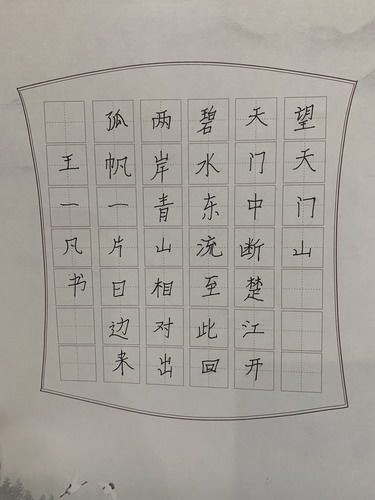 望天门山
天门中断楚江开
碧水东流至此回
两岸青山相对出
孤帆一片日边来
王一凡书